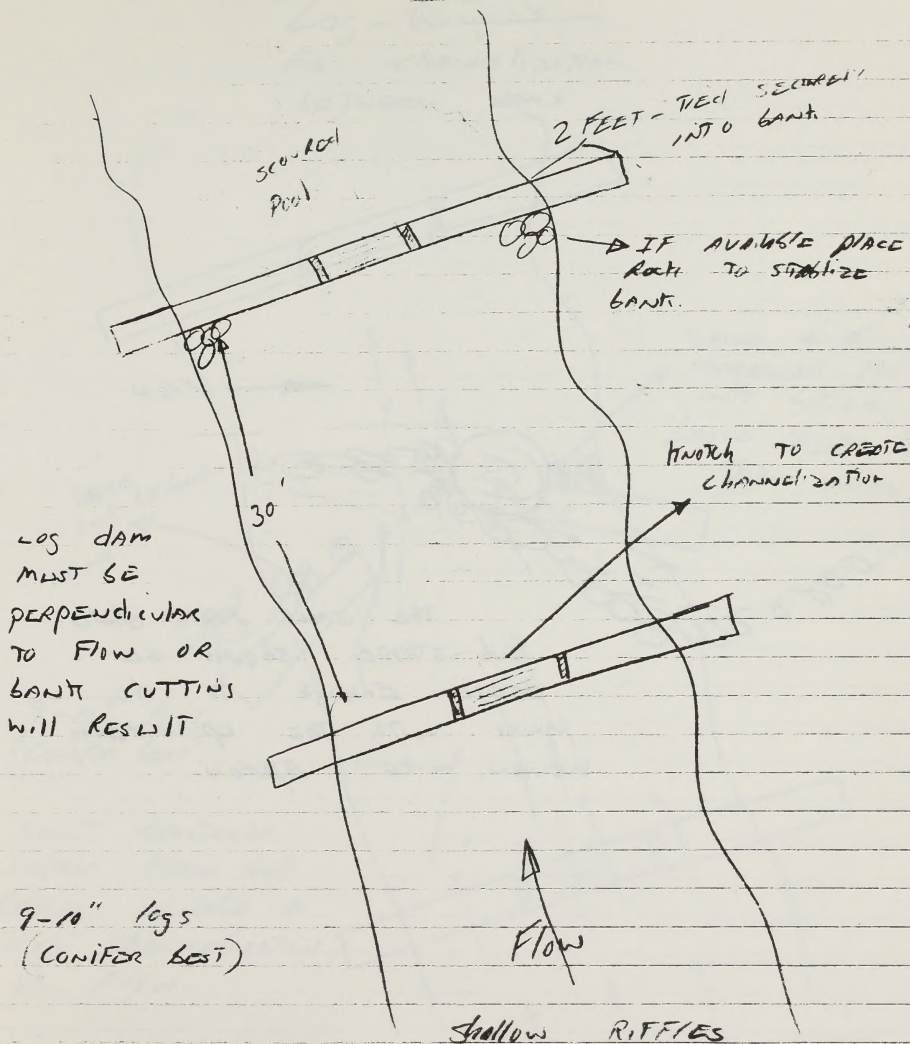 SCOURED
POOL
2 FEET - TIED SECURELY
INTO BANK
IF AVAILABLE PLACE
ROCK TO STABILIZE
BANK.
30'
KNOTCH TO CREATE
CHANNELIZATION
LOG DAM
MUST BE
PERPENDICULAR
TO FLOW OR
BANK CUTTING
WILL RESULT
9-10" logs
(CONIFER BEST)
Flow
Shallow RIFFLES